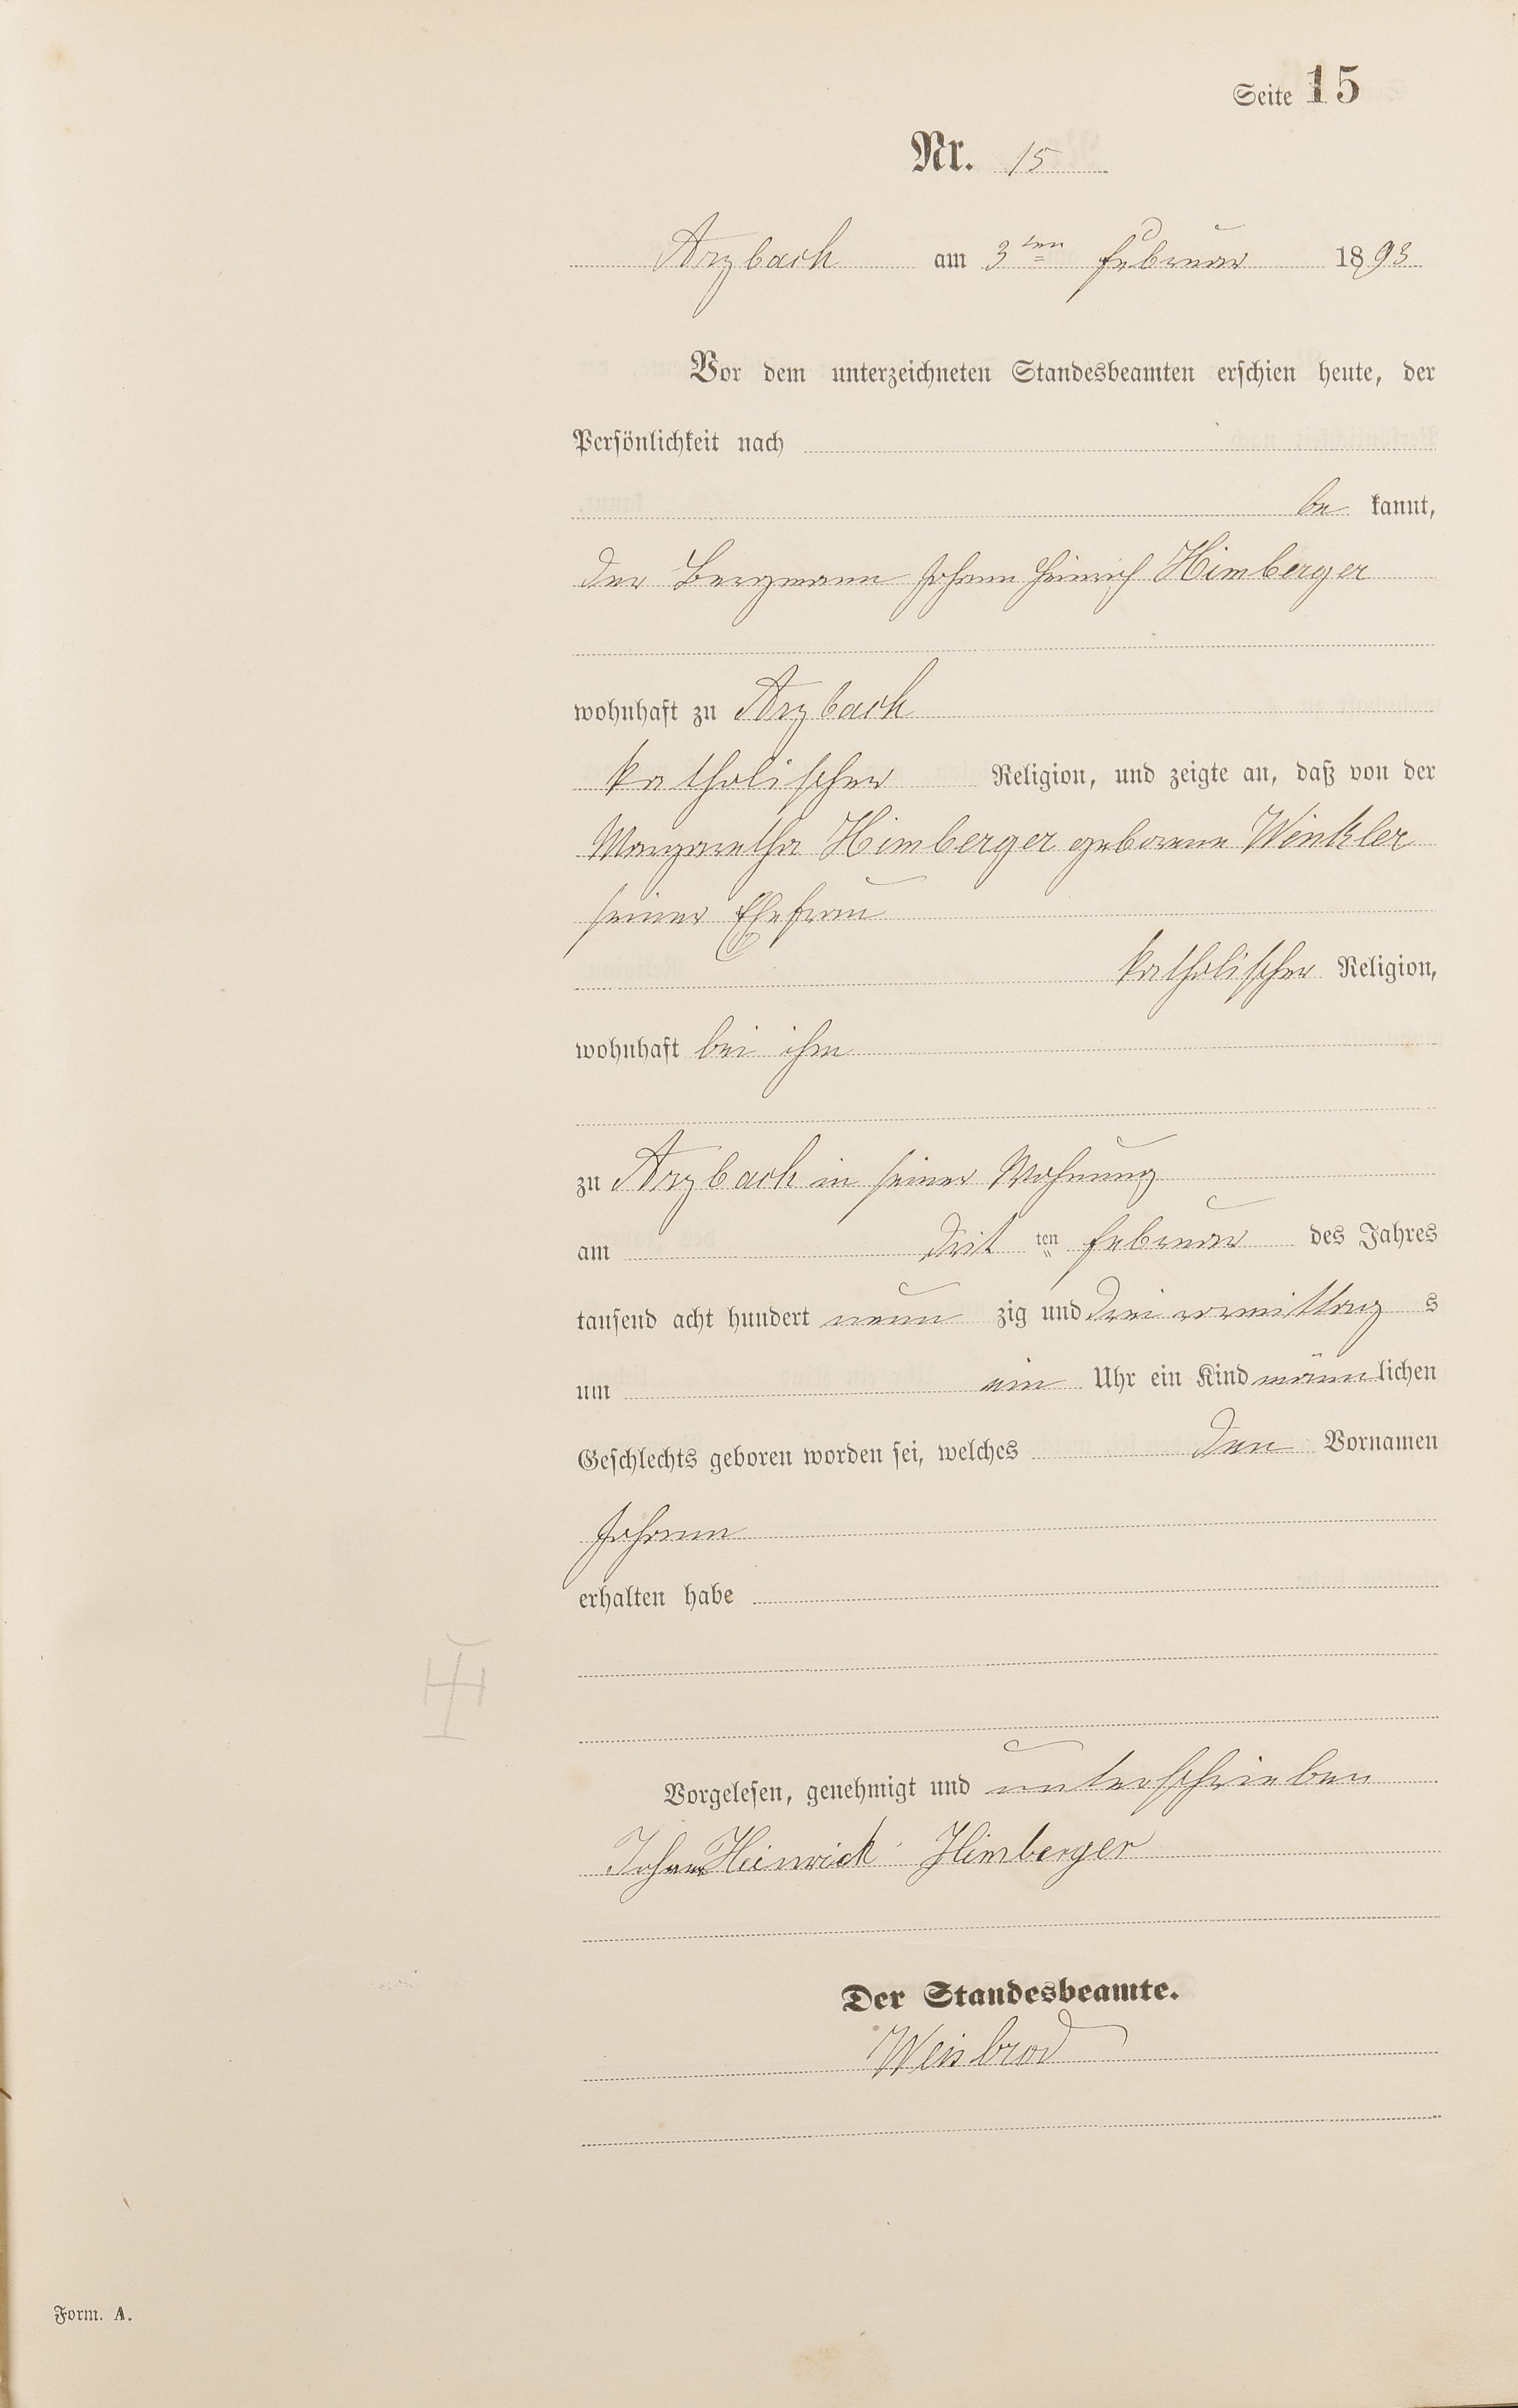 Seite 15
Nr. 15
Arzbach am 3ten Februar 1893
Vor dem unterzeichneten Standesbeamten erschien heute, der
Persönlichkeit nach
be kannt,
der Bergmann Johann Heinrich Himberger
wohnhaft zu Arzbach
katholischer Religion, und zeigte an, daß von der
Margaretha Himberger geborene Winkler
seiner Ehefrau
katholischer Religion,
wohnhaft bei ihm
zu Arzbach in seiner Wohnung
am drit ten Februar des Jahres
tausend acht hundert neun zig und drei vormittag s
um ein Uhr ein Kind männ lichen
Geschlechts geboren worden sei, welches den Vornamen
Johann
erhalten habe
Vorgelesen, genehmigt und unterschrieben
Johann Heinrich Himberger
Der Standesbeamte.
Weisbrod
Form. A.